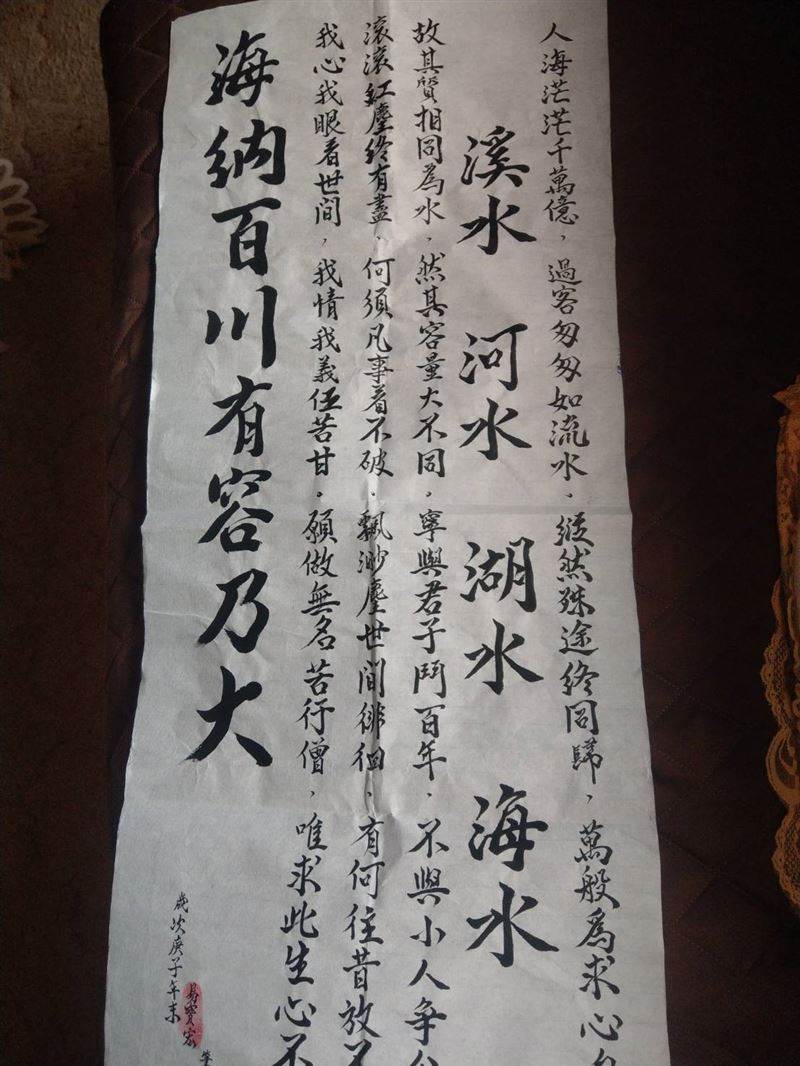 人海茫茫千萬億，過客匆匆如流水，縱然殊途終同歸，萬般為求心
溪水 河水 湖水 海水
故其質相同為水，然其容量大不同，寧與君子鬥百年，不與小人爭
滾滾紅塵終有盡，何須凡事看不破，飄渺塵世間徘徊，有何往昔放不
我心我眼看世間，我情我義伍苦甘，願做無名苦行僧，唯求此生心不
海納百川有容乃大
歲次庚子年末
易寶宏